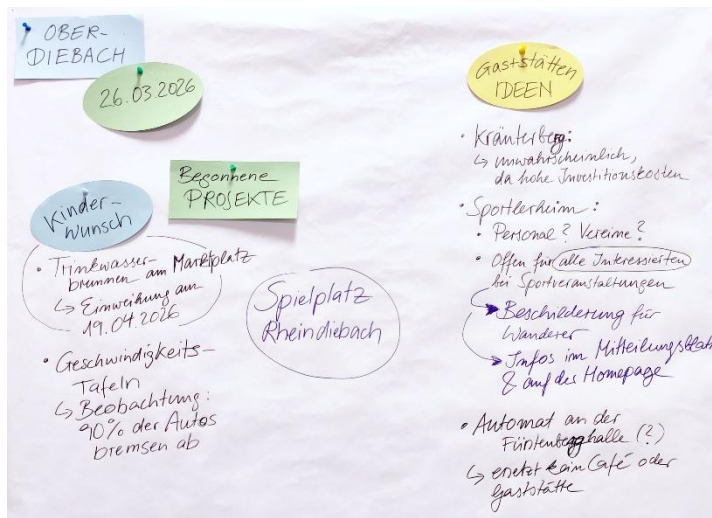 OBER-
DIEBACH
26.03.2026
Begonnene
PROJEKTE
Kinder-
wunsch
• Trinkwasser-
brunnen am Marktplatz
↳ Einweihung am
19.04.2026
• Geschwindigkeits-
Tafeln
↳ Beobachtung:
90% der Autos
bremsen ab
Spielplatz
Rheindiebach
Gaststätten
IDEEN
• Kräuterberg:
↳ unwahrscheinlich,
da hohe Investitionskosten
• Sportlerheim:
• Personal? Vereine?
• Offen für alle Interessierten
bei Sportveranstaltungen
→ Beschilderung für
Wanderer
→ Infos im Mitteilungsblatt
& auf der Homepage
• Automat an der
Fürstenberghalle (?)
↳ ersetzt kein Café oder
Gaststätte